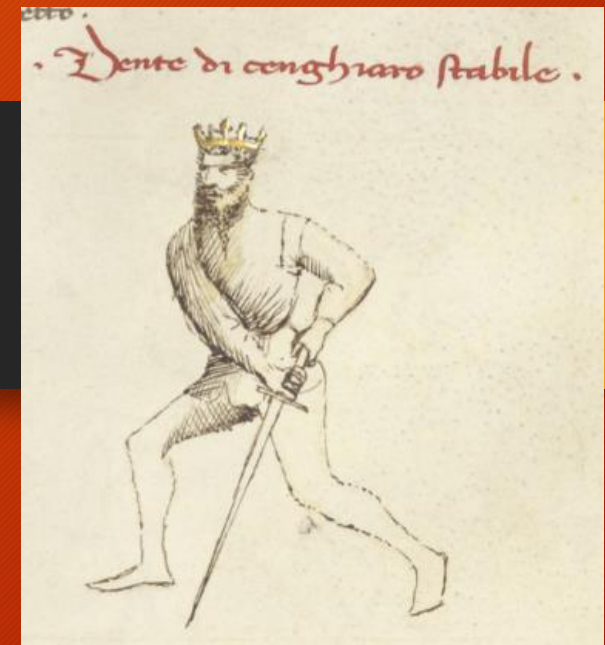 etto.
. Dente di cenghiaro stabile .